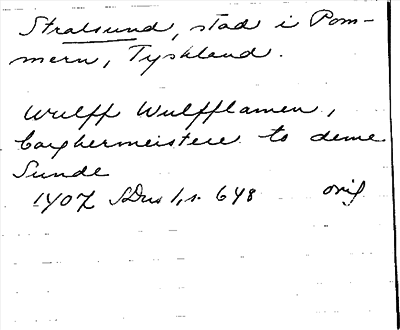 Stralsund, stad i Pom-
mern, Tyskland.
Wulff Wulfflamen,
borghermeistere to deme
Sunde
1407 SDns 1, s. 648 orig